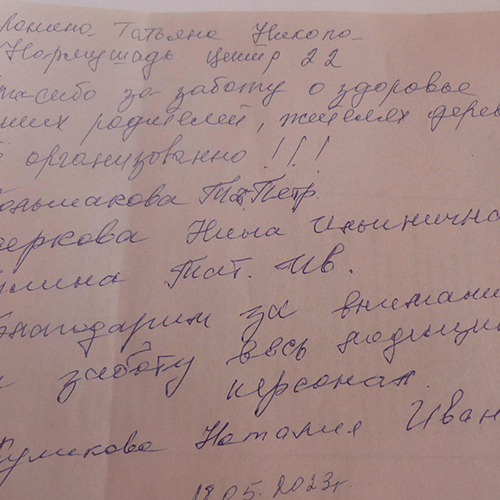 Татьяна Никола-
центр 22
Спасибо за заботу о здоровье
наших родителей, жителях дерев
организованно!!!
ольшакова Тат. Петр.
еркова Нина Ильинична
Тат. Ив.
Благодарим за внимани
и заботу весь медицин
персонал.
Наталия Иван
18.05.2023г